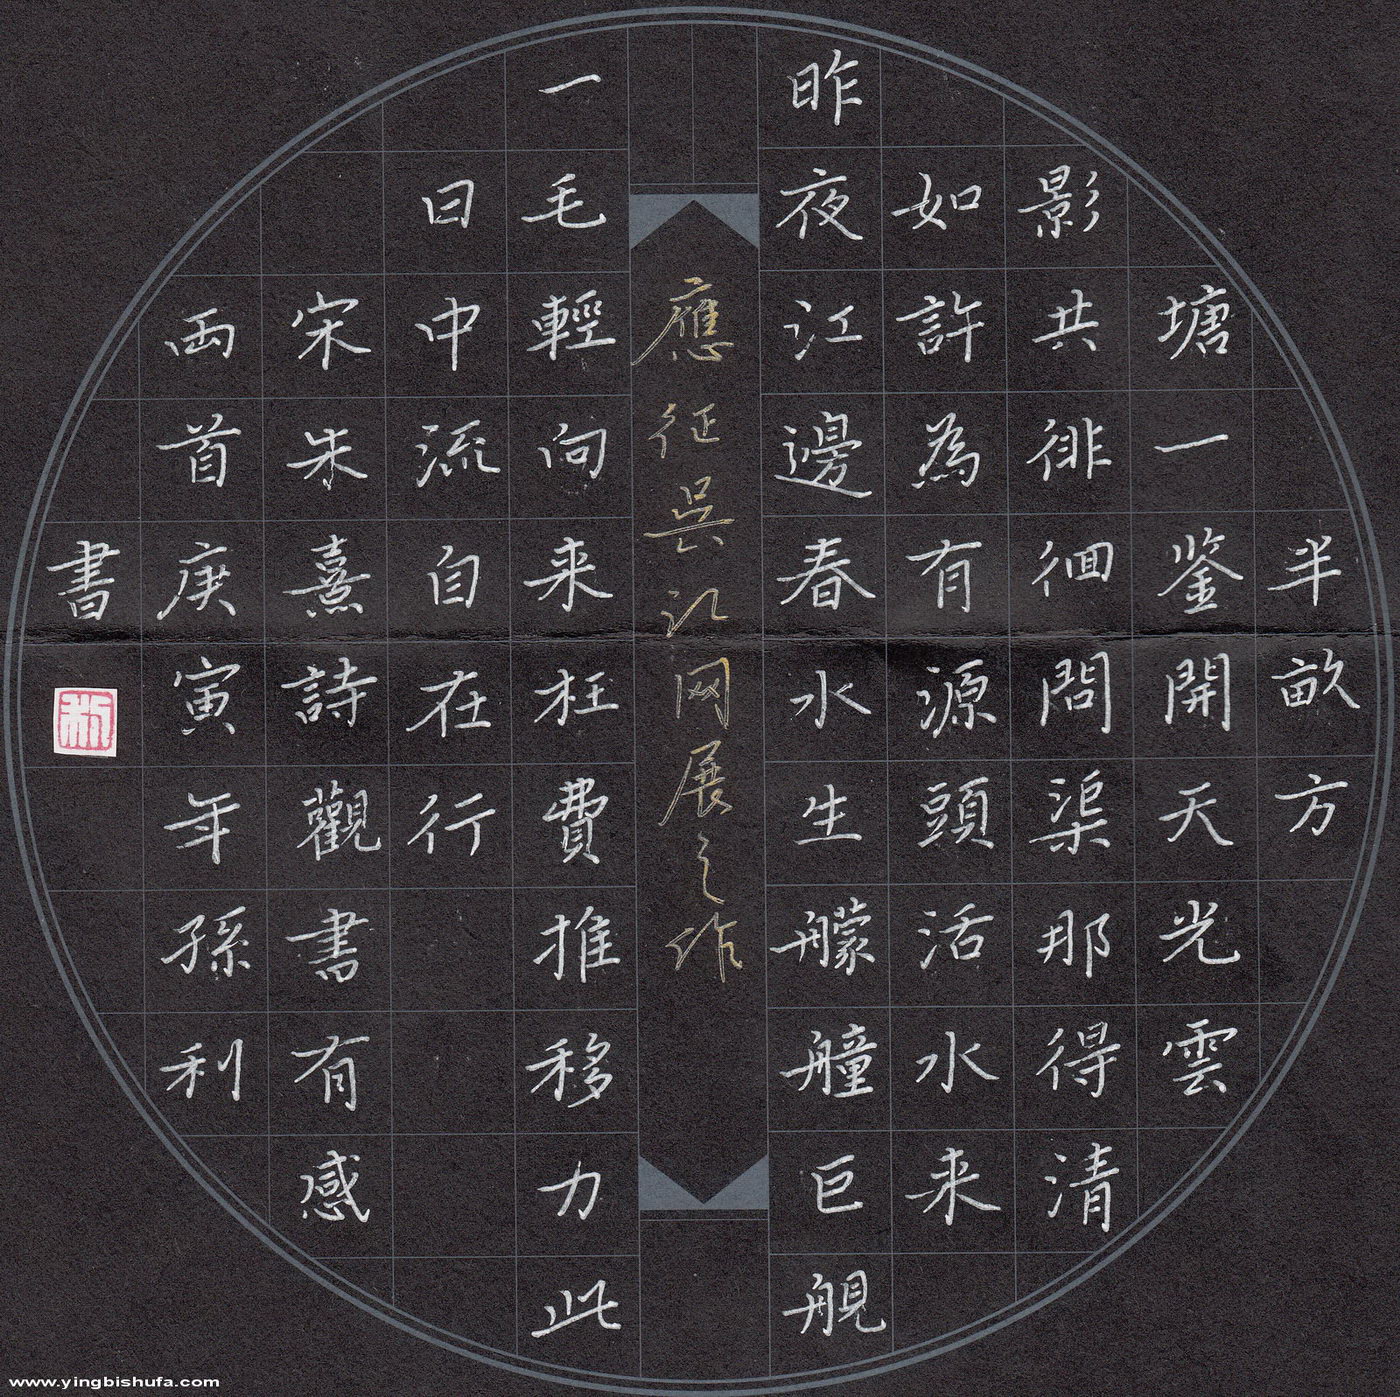 半畝方
塘一鉴開天光雲
影共徘徊問渠那得清
如許為有源頭活水来
昨夜江邊春水生艨艟巨舰
應征吳江网展之作
一毛輕向来枉費推移力此
日中流自在行
宋朱熹詩觀書有感
兩首庚寅年孫利
書
www.yingbishufa.com